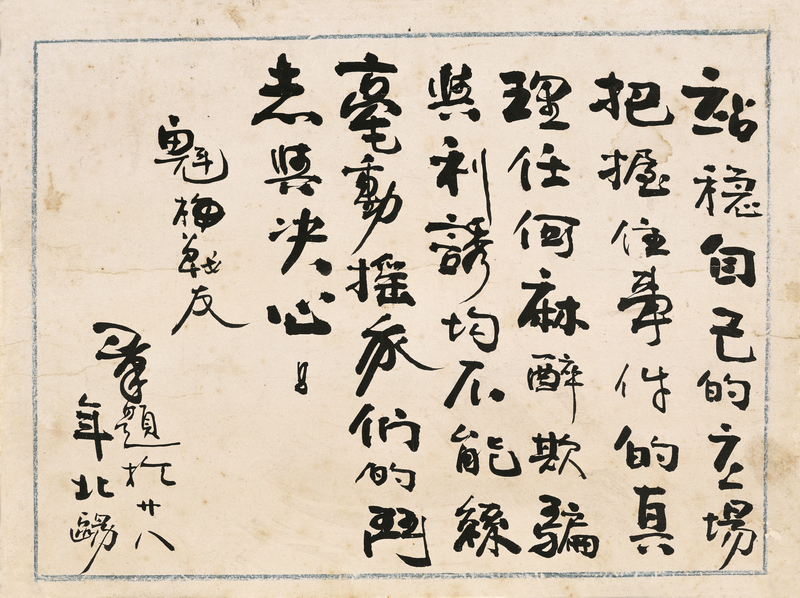 站穩自己的立場
把握住事件的真
理任何麻醉欺騙
與利誘均不能絲
毫動搖我們的鬥
志與決心
魁梅戰友
題於廿八
年北